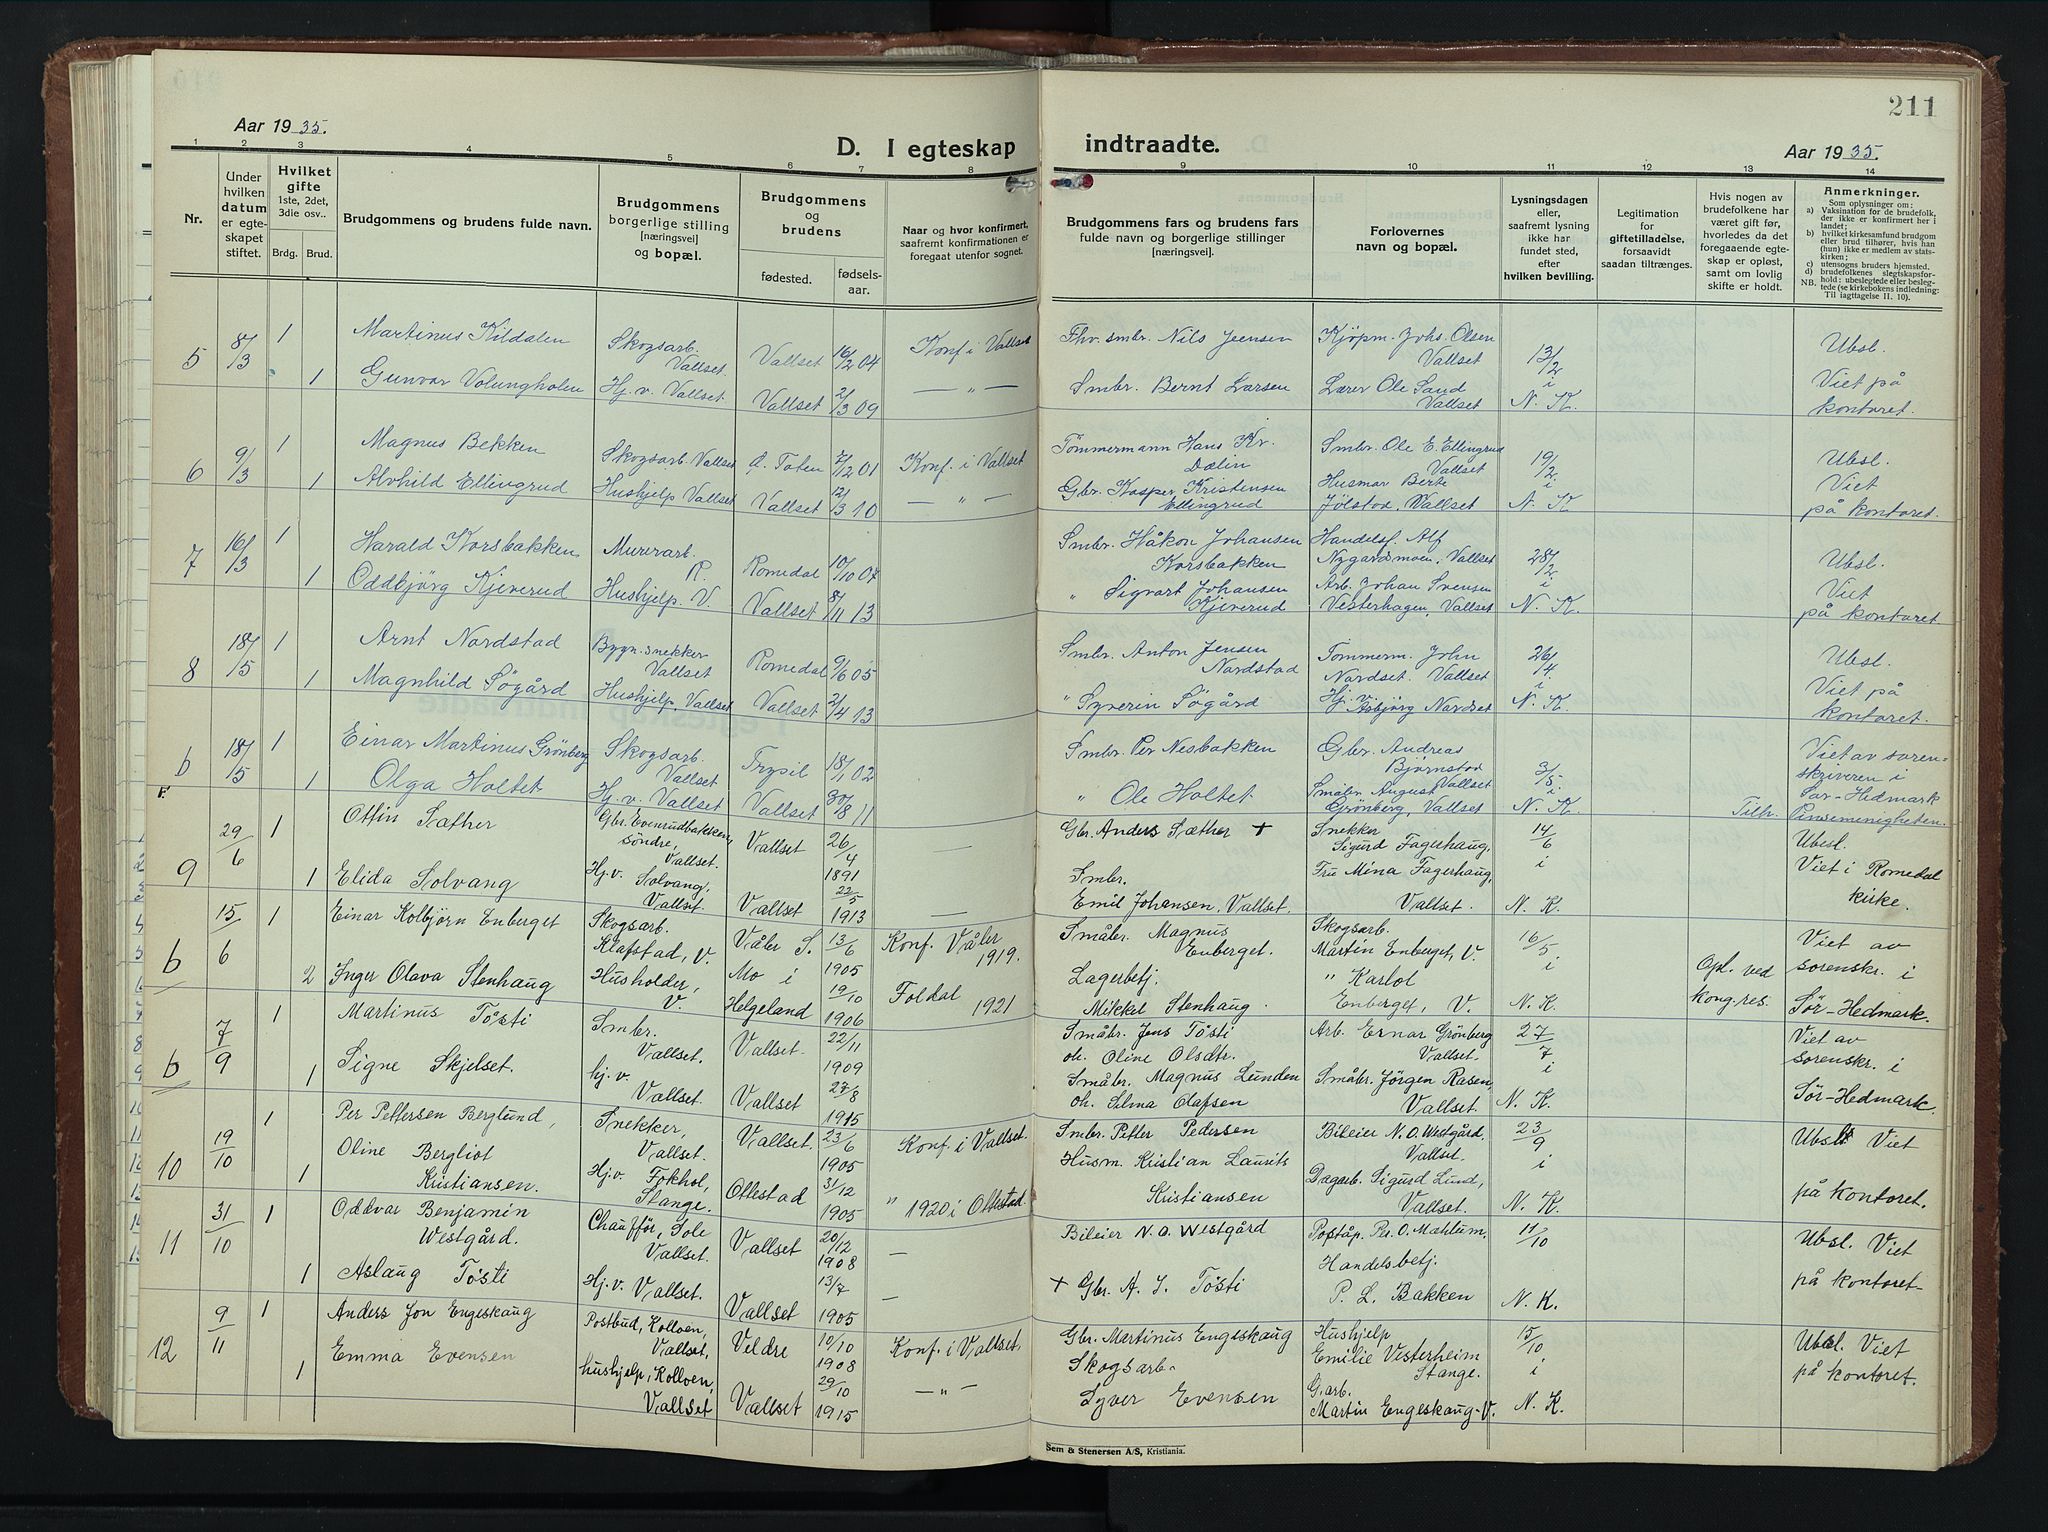 211
Aar 1935.
D. I egteskap
indtraadte.
Aar 1935.
1 2 3 4 5 6 7 8 9 10 11 12 13 14
Nr.
Under hvilken datum er egteskapet stiftet.
Hvilket gifte 1ste, 2det, 3die osv..
Brdg. Brud.
Brudgommens og brudens fulde navn.
Brudgommens borgerlige stilling [næringsvei] og bopæl.
Brudgommens og brudens
fødested. fødselsaar.
Naar og hvor konfirmert, saafremt konfirmationen er foregaat utenfor sognet.
Brudgommens fars og brudens fars fulde navn og borgerlige stillinger [næringsvei].
Forlovernes navn og bopæl.
Lysningsdagen eller, saafremt lysning ikke har fundet sted, efter hvilken bevilling.
Legitimation for giftetilladelse, forsaavidt saadan tiltrænges.
Hvis nogen av brudefolkene har været gift før, hvorledes da det foregaaende egteskap er opløst, samt om lovlig skifte er holdt.
Anmerkninger.
Som oplysninger om:
a) Vaksination for de brudefolk, der ikke er konfirmert her i landet;
b) hvilket kirkesamfund brudgom eller brud tilhører, hvis han (hun) ikke er medlem av statskirken;
c) utensogns bruders hjemsted.
d) brudefolkenes slegtskapsforhold: ubeslegtede eller beslegtede (se kirkebokens indledning:
NB. Til iagttagelse II. 10).
5 8/3 1 Martinus Kildalen Skogsarb. Vallset. Vallset 16/2 04 Konf. i Vallset Fhv. smbr. Nils Jensen Kjøpm. Johs. Olsen Vallset 13/2 i N. K. Ubsl. Viet på kontoret.
1 Gunvor Volungholen Hj. v. Vallset. Vallset 2/3 09 — " — Smbr. Bernt Larsen Lærer Ole Sand Vallset
6 9/3 1 Magnus Bekken Skogsarb. Vallset Ø. Toten 7/12 01 Konf. i Vallset Tömmermann Hans Kr. Dælin Smbr. Ole E. Ellingrud Vallset 19/2 i N. K. Ubsl. Viet på kontoret.
1 Alvhild Ellingrud Hushjelp Vallset Vallset 12/3 10 — " — Gbr. Kasper Kristensen Ellingrud Husmor Berte Jølstad, Vallset
7 16/3 1 Harald Korsbakken Murerarb. R. Romedal 10/10 07 Smbr. Håkon Johansen Korsbakken Handelsf. Alf Nygardsmoen, Vallset 28/2 i N. K. Ubsl. Viet på kontoret.
1 Oddbjörg Kjeverud Hushjelp. V. Vallset 8/11 13 " Sigvart Johansen Kjeverud Arb. Johan Svensen Vesterhagen, Vallset
8 18/5 1 Arnt Nordstad Bygn. snekker Vallset Romedal 9/6 05 Smbr. Anton Jensen Nordstad Tömmerm. John Nordset. Vallset 26/4 i N. K. Ubsl. Viet på kontoret.
1 Magnhild Sögård Hushjelp, Vallset Vallset 2/4 13 " Syverin Sögård Hj. v. Asbjörg Nordset
b 18/5 1 Einar Martinus Grönberg Skogsarb. Vallset Trysil 18/1 02 Smbr. Per Nesbakken Gbr. Andreas Björnstad Vallset 3/5 i N. K. Viet av sorenskriveren i Sør-Hedmark
1 Olga Holtet Hj. v. Vallset Vallset 30/8 11 " Ole Holtet Småbr. August Grönberg, Vallset Tilh. Pinsemenigheten.
F.
9 29/6 1 Ottin Sæther Gbr. Evenrudbakken söndre, Vallset. Vallset 26/4 1891 — Gbr. Anders Sæther + Snekker Sigurd Fagerhaug, 14/6 i N. K. Ubesl. Viet i Romedal kirke.
1 Elida Solvang Hj. v. Solvang, Vallset. Vallset 22/5 1913 — Smbr. Emil Johansen, Vallset. Fru Mina Fagerhaug, Vallset.
b 15/6 1 Einar Kolbjörn Enberget Skogsarb. Klafstad, V. Våler S. 13/6 1905 Konf. Våler 1919. Småbr. Magnus Enberget. Skogsarb. Martin Enberget, V. 16/5 i N. K. Viet av sorenskr. i Sør-Hedmark.
2 Inger Olava Stenhaug Husholder, V. Mo i Helgeland 19/10 1906 Foldal 1921 Lagerbetj. Mikkel Stenhaug. " Karlot Enberget, V. Opl. ved kong. res.
b 7/9 1 Martinus Tösti Smbr. Vallset. Vallset. 22/11 1909 Småbr. Jens Tösti oh. Oline Olsdtr. Arb. Ernar Grönberg Vallset. 27/7 i N. K. Viet av sorenskr. i Sør-Hedmark.
1 Signe Skjelset. hj. v. Vallset. Vallset 27/8 1915 Småbr. Magnus Lunden oh. Selma Olafsen Småbr. Jörgen Rasen, Vallset.
10 19/10 1 Per Pettersen Berglund, Snekker, Vallset. Vallset. 23/6 1905 Konf. i Vallset. Smbr. Petter Pedersen Bileier N. O. Westgård, Vallset. 23/9 i N. K. Ubsl. Viet på kontoret.
1 Oline Bergliot Kristiansen. Hj. v. Fokhol, Stange. Ottestad 31/12 1905 " 1920 i Ottestad. Husm. Kristian Laurits Kristiansen Dagarb. Sigurd Lund, Vallset.
11 31/10 1 Oddvar Benjamin Westgård. Chauffør, Sole Vallset. Vallset 20/12 1908 — Bileier N. O. Westgård Poståp. Per O. Mæhlum, 11/10 N. K. Ubsl. Viet på kontoret
1 Aslaug Tösti Hj. v. Vallset. Vallset 13/7 1905 — + Gbr. A. J. Tösti Handelsbetj. P. L. Bakken
12 9/11 1 Anders Jon Engeskaug Postbud, Kolloen, Vallset, Veldre 10/10 1908 Konf. i Vallset. Gbr. Martinus Engeskaug Hushjelp Emilie Vesterheim Stange. 15/10 i N. K. Ubsl. Viet på kontoret.
1 Emma Evensen hushjelp, Kolloen, Vallset Vallset 29/10 1915 — " — Skogsarb. Syver Evensen G.arb. Martin Engeskaug - V.
Sem & Stenersen A/S, Kristiania.